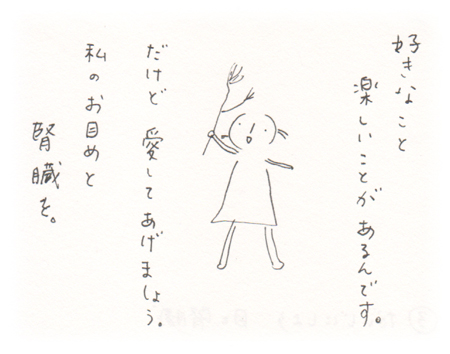 好きなこと
楽しいことがあるんです。
だけど 愛してあげましょう。
私のお目めと
腎臓を。